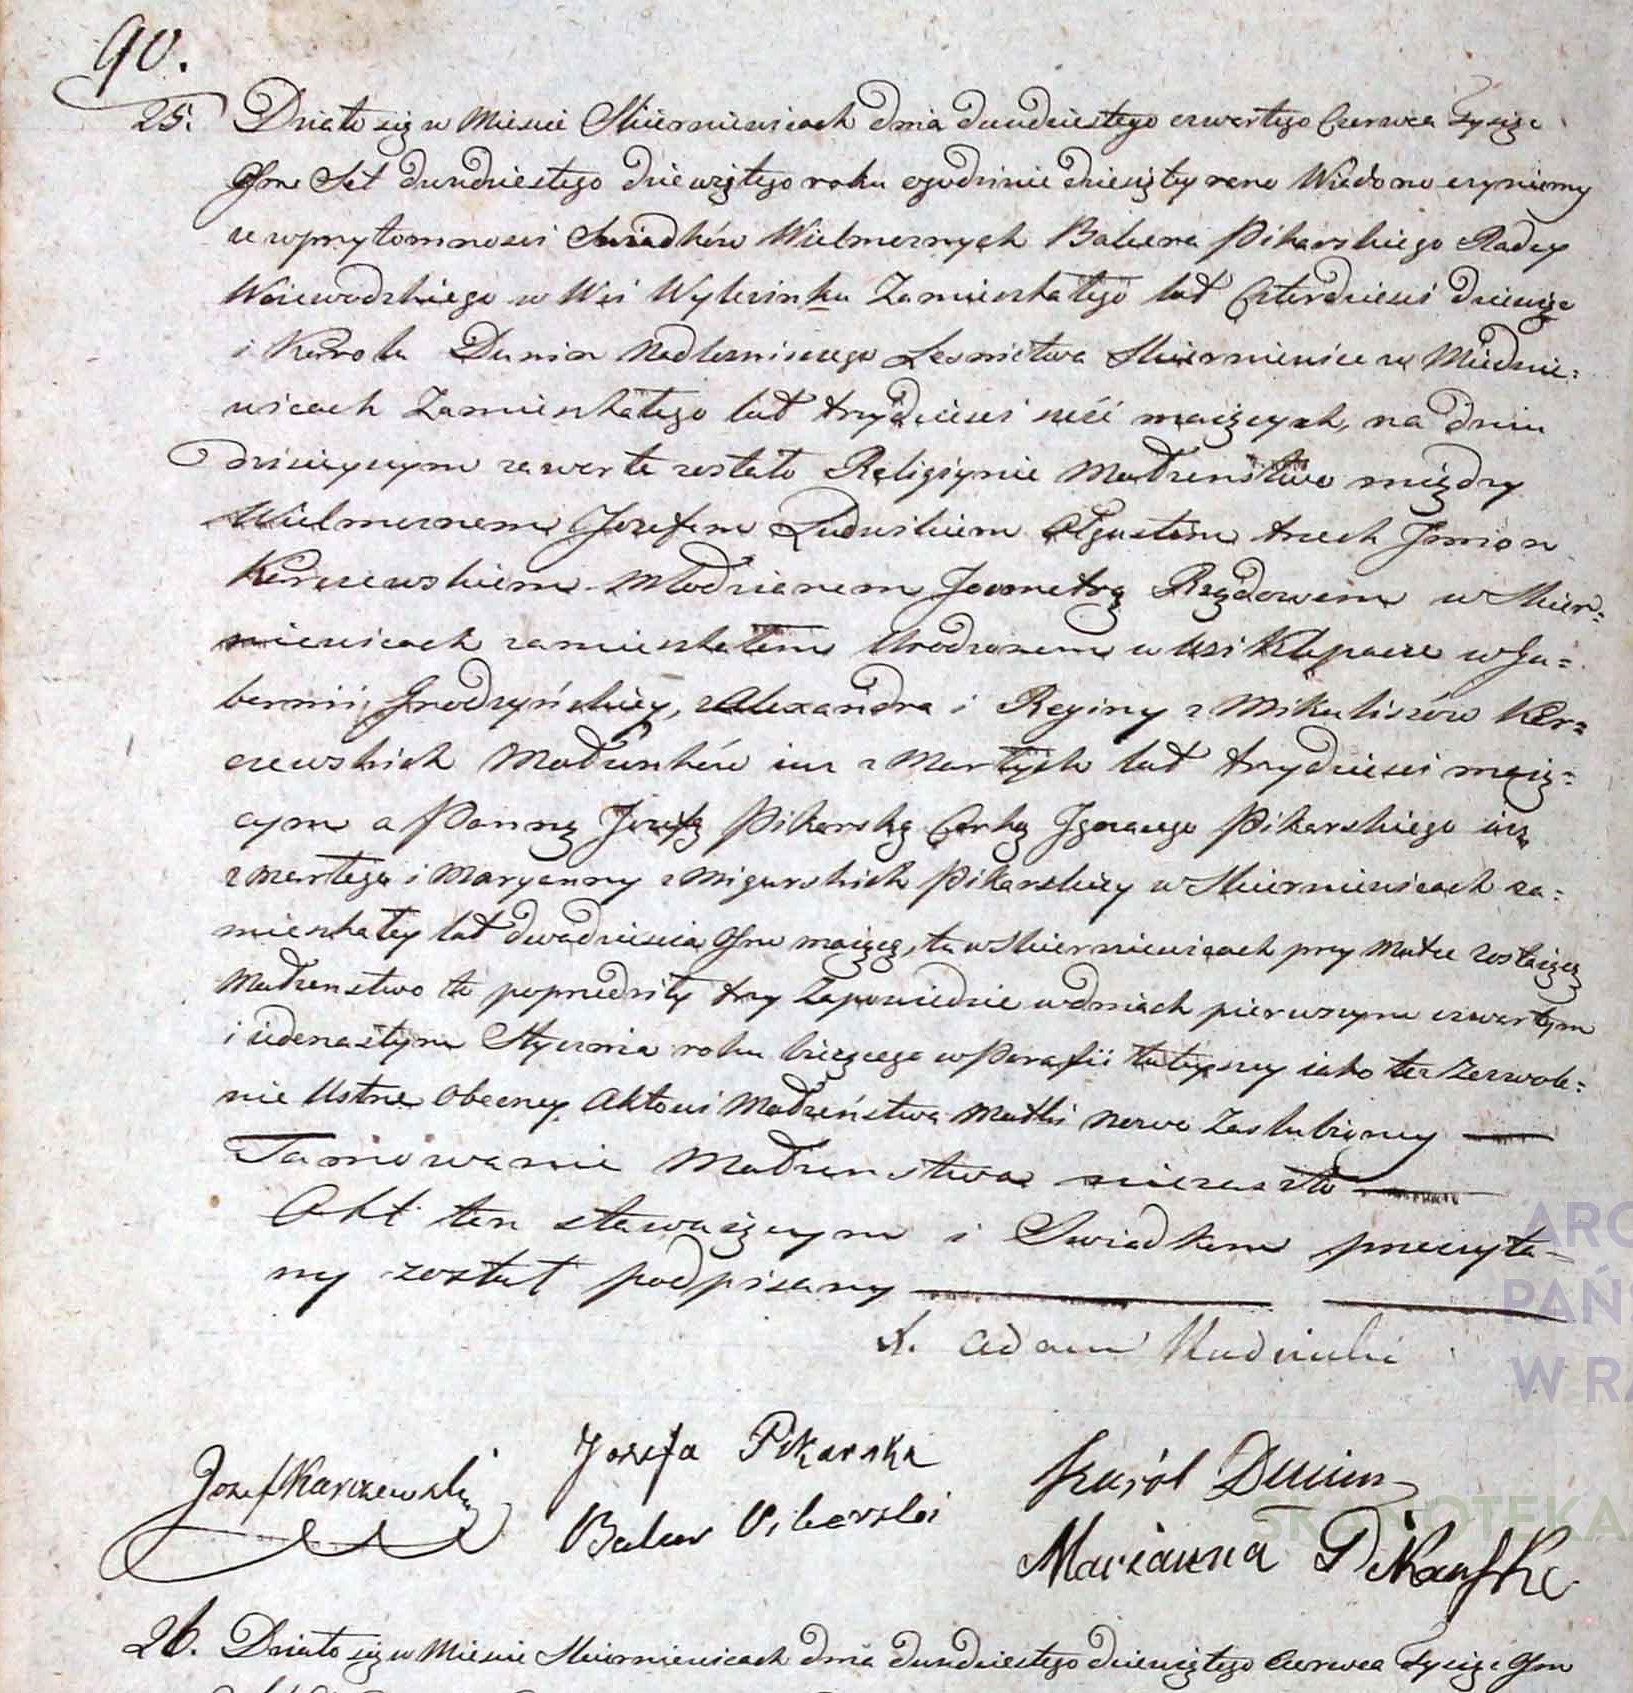 90.
25. Działo się w Miescie Skierniewicach dnia dwudziestego czwartego Czerwca Tysiąc
Osm Set dwudziestego dziewiątego roku o godzinie dziesiątey rano Wiadomo czyniemy
iż w przytomnosci Swiadków Wielmoznych Pikarskiego Radcy
Woiewodzkiego w Wsi Zamieszkałego lat Czterdziesci dziewięc
i Karola Dunin Nadlesniczego Lesnictwa Skierniewice w Miednie=
wicach Zamieszkałego lat trzydziesci sześć maiących, na dniu
dzisieyszym zawarte zostało Religiynie Małzeństwo między
Wielmoznem Jozefem Ludwikiem trzech Jmion
Karczewskiem Młodzianem Jeometrą Rządowem w Skier=
niewicach zamieszkałem Urodzonem w Wsi Klepacze w Gu=
bernii Grodzyńskiey, z Alexandra i Reginy z Mikuliszów Kar=
czewskich Małzonków iuz zmarłych lat trzydziesci maią=
cym a Panną Jozefą Pikarską Corką Jgnacego Pikarskiego iuz
zmarłego i Maryanny z Migurskich Pikarskiey w Skierniewicach za=
mieszkałey lat dwadziescia Osm maiącą, tu w Skierniewicach przy Matce zostaiącą
Małzenstwo to poprzedziły trzy Zapowiedzie w dniach pierwszym czwartym
i iedenastym Stycznia roku bieżącego w Parafii tuteyszey iako tez Zezwole=
nie Ustne Obecney Aktowi Małzeństwa Matki Nowo Zaslubioney
Tamowanie Małzenstwa niezaszło
Akt ten stawaiącym i Swiadkom przeczyta=
ny został podpisany
X. Adam
Jozef Karczewski
Jozefa Pikarska
Karól Dunin
Pikarski
Marianna Pikarska
ARC
PAŃ
W RA
SKANOTEKA
26. Działo się w Miescie Skierniewicach dnia dwudziestego dziewiątego Czerwca Tysiąc Osm